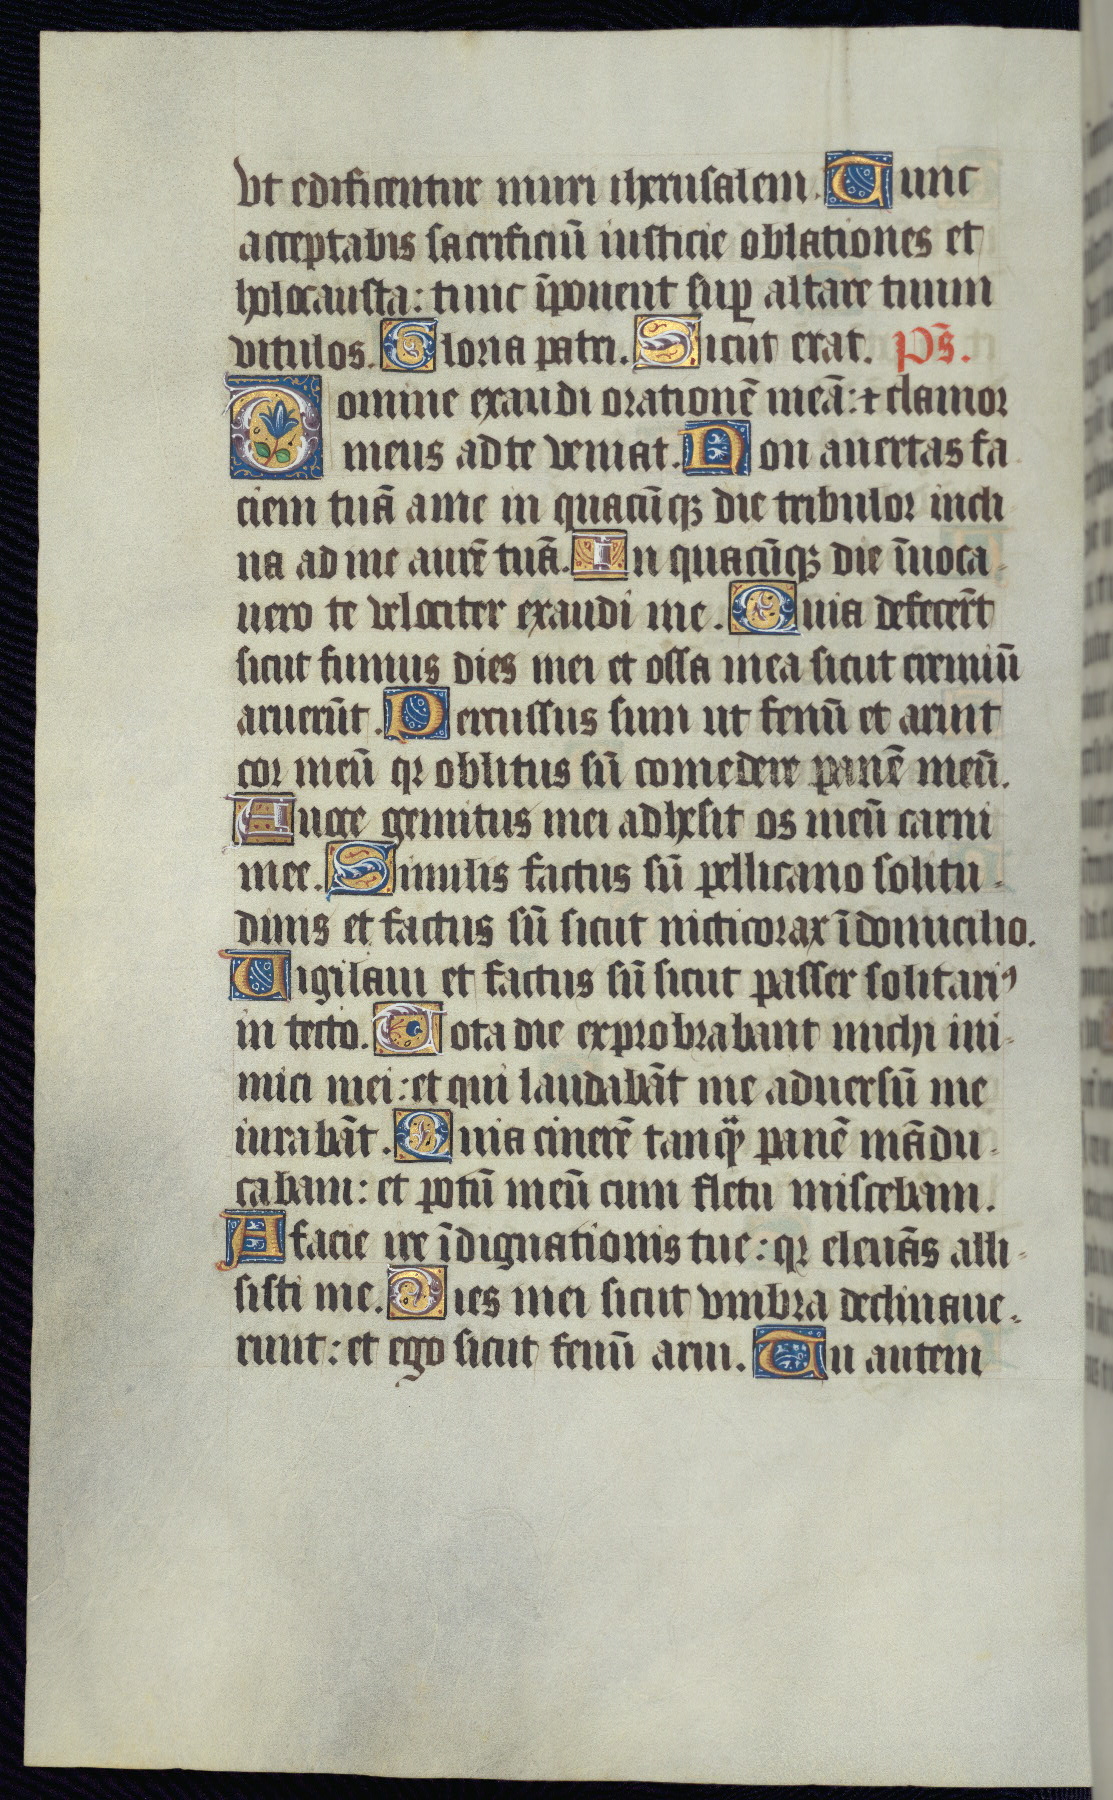 Vt edificentur muri iherusalem. Tunc
acceptabis sacrificiū iusticie oblationes et
holocausta: tunc īponent sup altare tuum
vitulos. Gloria patri. Sicut erat. Ps̄.
Domine exaudi orationē meā: ⁊ clamor
meus ad te veniat. Non auertas fa
ciem tuā a me in quacūqꝫ die tribulor incli
na ad me aurē tuā. In quacūqꝫ die īuoca-
uero te velociter exaudi me. Quia defecer̄t
sicut fumus dies mei et ossa mea sicut cremiū
aruerūt. Percussus sum ut fenū et aruit
cor meū qr oblitus sū comedere panē meū.
A uoce gemitus mei adhesit os meū carni
mee. Similis factus sū pellicano solitu-
dinis et factus sū sicut nicticorax ī domicilio.
Vigilaui et factus sū sicut passer solitariꝰ
in tecto. Tota die exprobrabant michi ini-
mici mei: et qui laudabāt me aduersū me
iurabāt. Quia cinerē tanqᷓ panē mādu-
cabam: et potū meū cum fletu miscebam.
A facie ire īdignationis tue: qr eleuās alli-
sisti me. Dies mei sicut vmbra declinaue-
runt: et ego sicut fenū arui. Tu autem